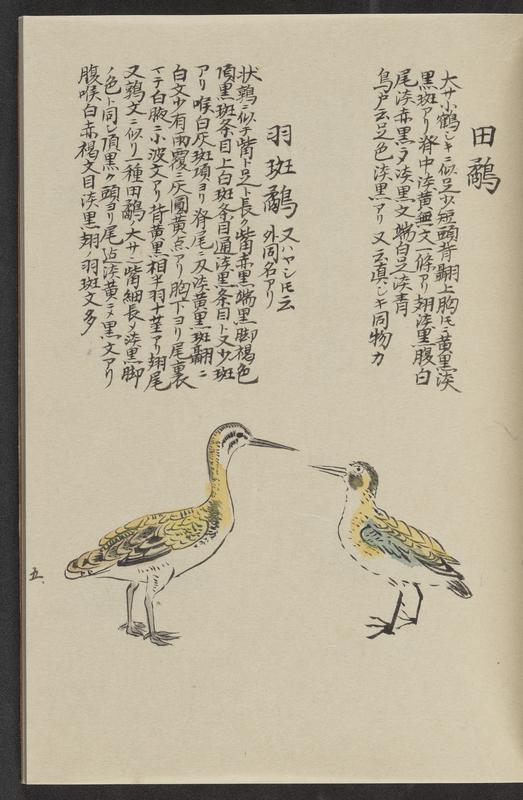 田鷸
大サ小鶴シキニ似足少短頭背翮上胸ㇳモニ黄黒淡
黒斑アリ脊中淡黄無文一條アリ翅淡黒腹白
尾淡赤黒ヲ淡黒文端白足淡青
鳥戸云足色淡黒アリ又云真シキ同物カ
羽斑鷸 又ハヤシㇳモ云
外同名アリ
状鶉ニ似テ觜ト足ト長ク觜赤黒端黒脚褐色
頂黒斑条目上白斑条目通淡黒条目ト又少斑
アリ喉白灰斑項ヨリ脊尾ニ及淡黄黒斑翮ニ
白文少有雨覆ニ灰圓黄点アリ胸下ヨリ尾裏
マテ白腋ニ小波文アリ背黄黒相半羽十茎アリ翅尾
又鶉文ニ似リ一種田鷸大サニ觜細長〆淡黒脚
ノ色ト同シ頂黒ク頭ヨリ尾迄淡黄ニ〆黒文アリ
腹喉白赤褐文目淡黒翅ノ羽斑文多
五